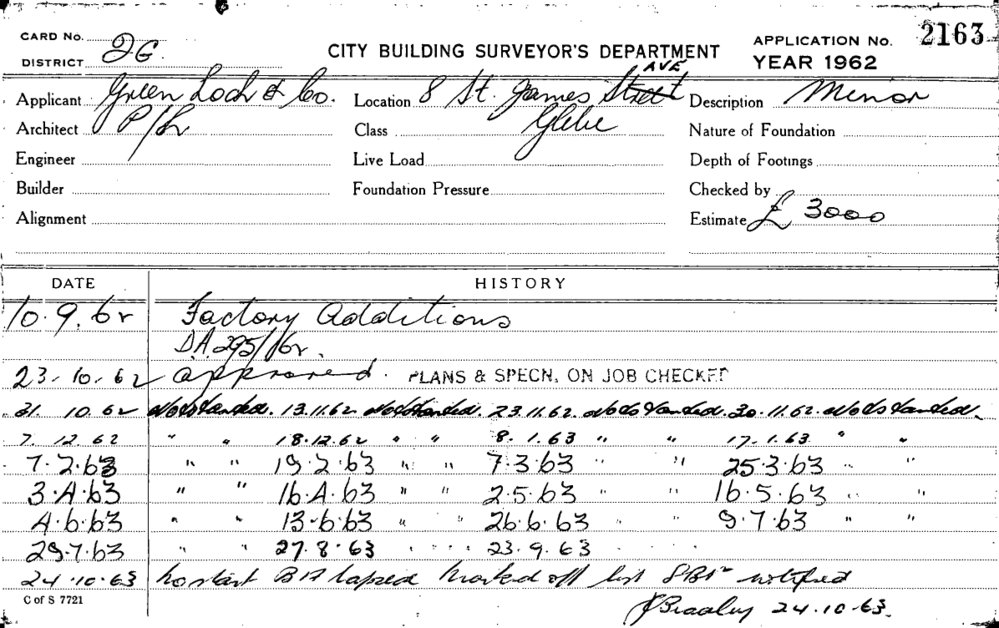 CARD No. 2163
DISTRICT 2G. CITY BUILDING SURVEYOR'S DEPARTMENT APPLICATION No.
YEAR 1962
AVE
Applicant Green Loch & Co. Location 8 St. James Street Description Minor
Architect P/L Class Glebe Nature of Foundation
Engineer Live Load Depth of Footings
Builder Foundation Pressure Checked by
Alignment Estimate £ 3000
DATE HISTORY
10.9.62 Factory Additions
D.A. 295/62.
23.10.62 approved. PLANS & SPECN. ON JOB CHECKED
31.10.62 Not Started. 13.11.62 Not Started. 23.11.62. Not Started. 30.11.62. Not Started.
7.12.62 " " 18.12.62 " " 8.1.63 " " 17.1.63. " "
7.2.63 " " 19.2.63 " " 7.3.63 " " 25.3.63 " "
3.4.63 " " 16.4.63 " " 2.5.63 " " 16.5.63 " "
4.6.63 " " 13.6.63 " " 26.6.63 " " 9.7.63 " "
29.7.63 " " 27.8.63 " " 23.9.63 " "
24.10.63 No start BA lapsed Marked off list notified
C of S 7721
Bradley 24.10.63.